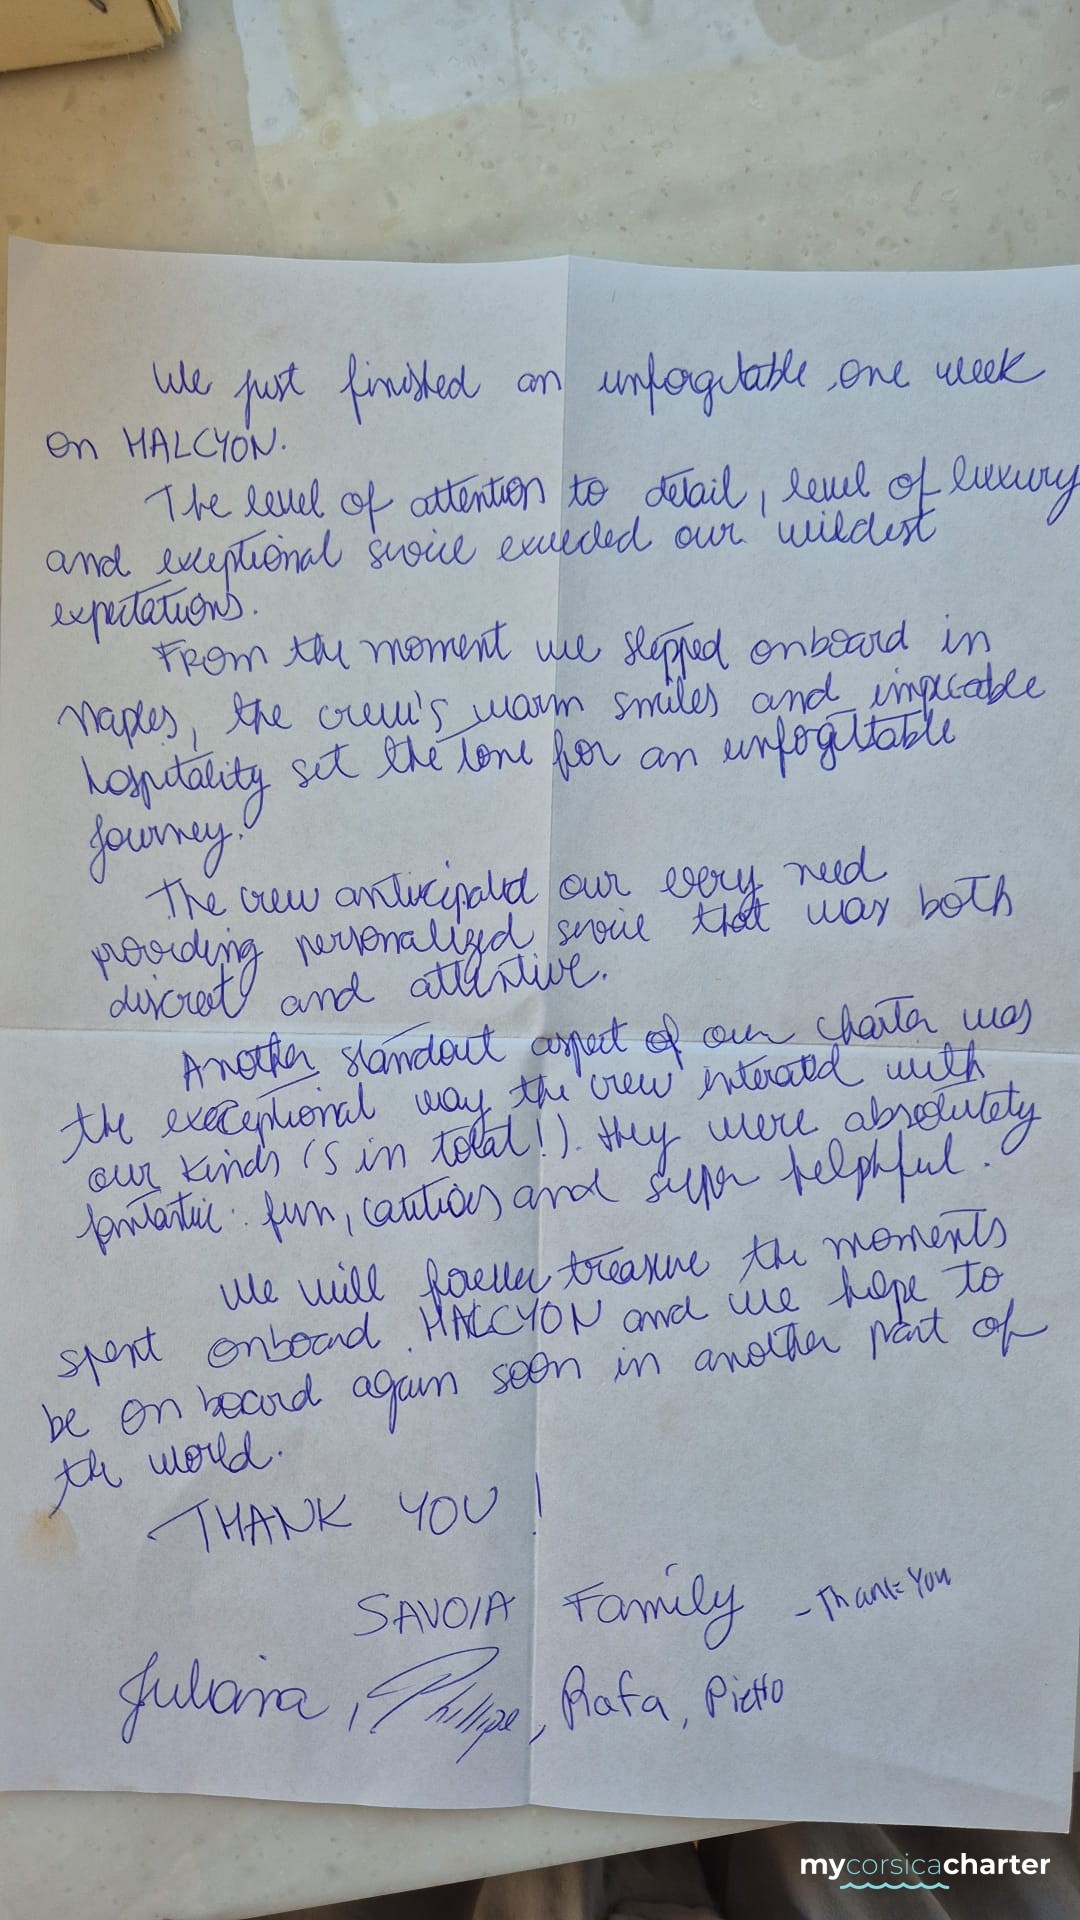 We just finished an unforgetable one week
on HALCYON.
The level of attention to detail, level of luxury
and exceptional service exceeded our wildest
expectations.
From the moment we stepped onboard in
Naples, the crew's warm smiles and impecable
hospitality set the tone for an unforgettable
journey.
The crew anticipated our every need
providing personalized service that was both
discreet and attentive.
Another standout aspect of our charter was
the execeptional way the crew interated with
our kinds (5 in total!). they were absolutety
fantastic: fun, cautios and super helphful.
We will forever treasure the moments
spent onboard HALCYON and we hope to
be on board again soon in another part of
the world.
THANK YOU!
SAVOIA Family - Thank You
Juliana, Phillipe, Rafa, Pietro
mycorsicacharter